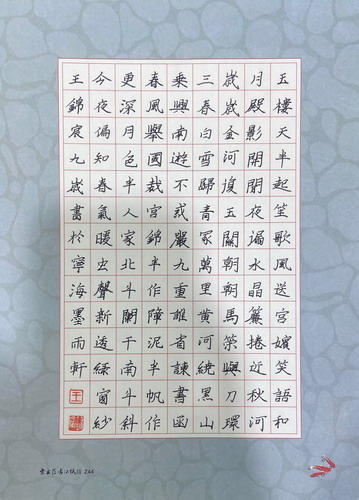 玉樓天半起笙歌風送宮嬪笑語和
月殿影開聞夜漏水晶簾捲近秋河
歲歲金河復玉關朝朝馬策與刀環
三春白雪歸青冢萬里黃河繞黑山
乘興南遊不戒嚴九重誰省諫書函
春風舉國裁宮錦半作障泥半帆作
更深月色半人家北斗闌干南斗斜
今夜偏知春氣暖虫聲新透綠窗紗
王錦宸九歲書於寧海墨雨軒